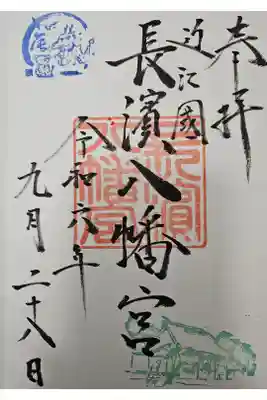 奉拝
近江國
長濱八幡宮
令和六年
九月二十八日